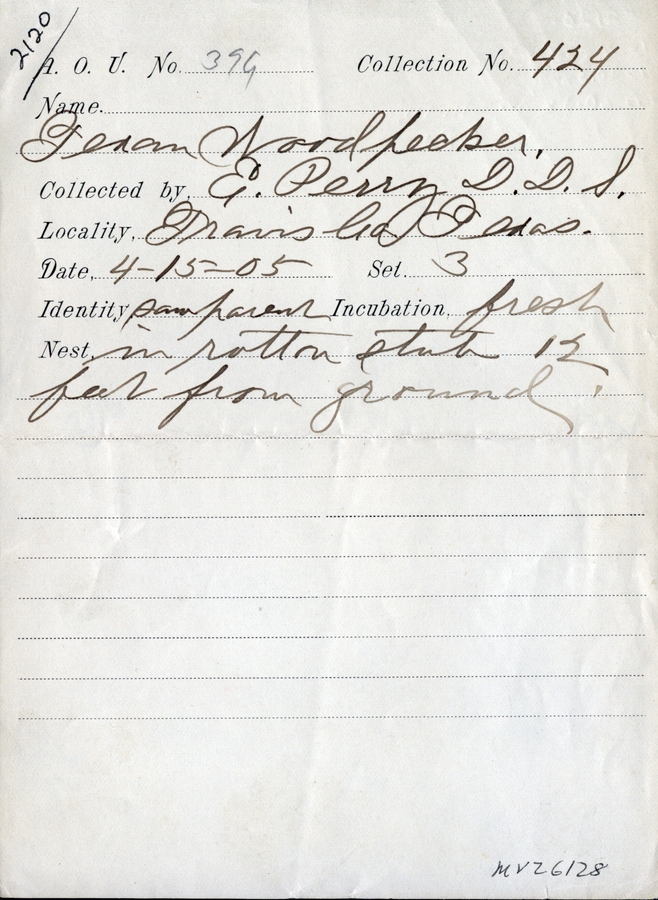 2120
A. O. U. No. 396 Collection No. 424
Name.
Texan Woodpecker.
Collected by E. Perry D.D.S.
Locality, Travis Co, Texas.
Date, 4-15-05 Set. 3
Identity, saw parent Incubation, fresh
Nest, in rotton stub 12
feet from ground.
MVZ6128